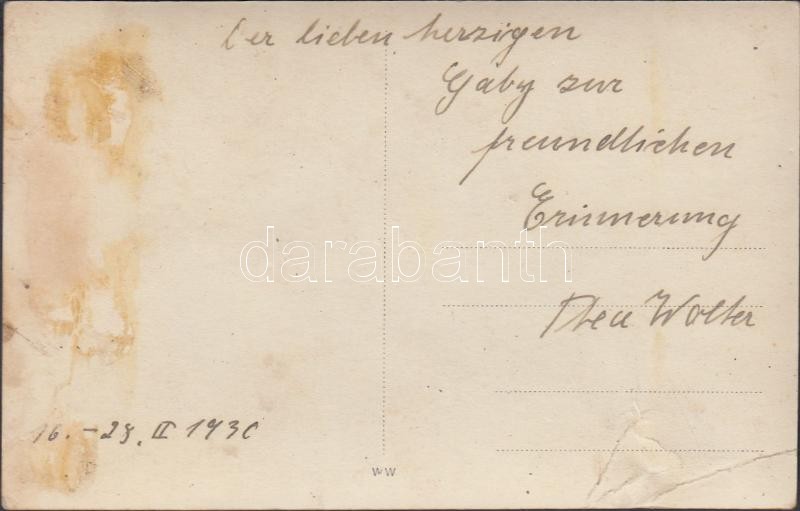 Der lieben herzigen
Gaby zur
freundlichen
Erinnerung
Thea Wolter
16.-23. II 1930
WW
darabanth